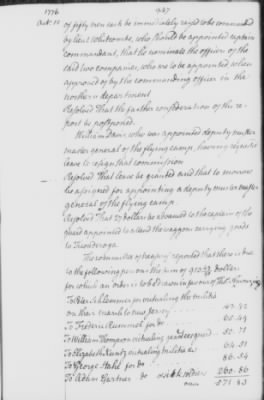 1776
Oct. 10
947
of fifty men each be immediately raised to be commanded
by lieut Whitcombe, who should be appointed captain
commandant, that he nominate the officers of the
said two companies, who are to be appointed when
approved of by the commanding officer in the
northern department
Resolved That the farther consideration of the re-
port be postponed.
William Davis who was appointed deputy muster
master general of the flying camp, having requested
leave to resign that commission
Resolved That leave be granted and that to morrow
be assigned for appointing a deputy muster master
general of the flying camp.
Resolved That 27 dollars be advanced to the captain of the
guard appointed to attend the waggons carrying goods
to Ticonderoga.
The committee of treasury reported that there is due
to the following persons the sum of 913 dollars
for which an order is to be drawn in favour of Thos
To Peter Schlemmer for victualling the militia
on their march to new Jersey 42.42
To Frederic Rummel for do 65.44
To William Thompson victualling 50.71
To Elizabeth Kuntz victualing militia do 64.51
To George Stake for do 86.34
To Adam Gartner do sick soldier 260.86
over 571.83